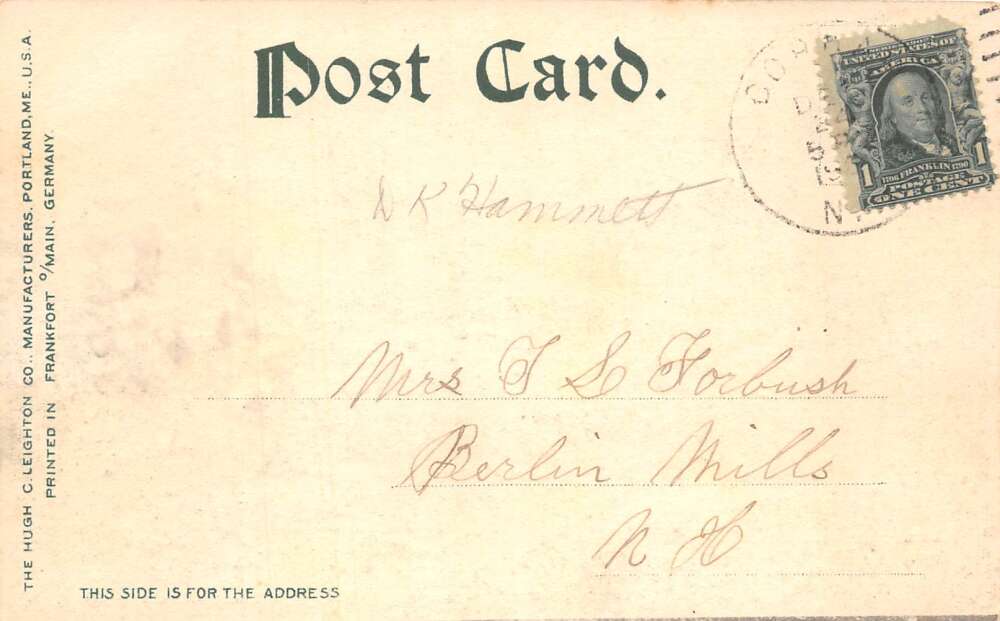 Post Card.
SERIES 1902
UNITED STATES OF
AMERICA
1 1
1706 FRANKLIN 1790
POSTAGE
ONE CENT
D K Hammett
Mrs F L Forbush
Berlin Mills
N H
THIS SIDE IS FOR THE ADDRESS
THE HUGH C. LEIGHTON CO., MANUFACTURERS, PORTLAND, ME., U.S.A.
PRINTED IN FRANKFORT O/MAIN, GERMANY.